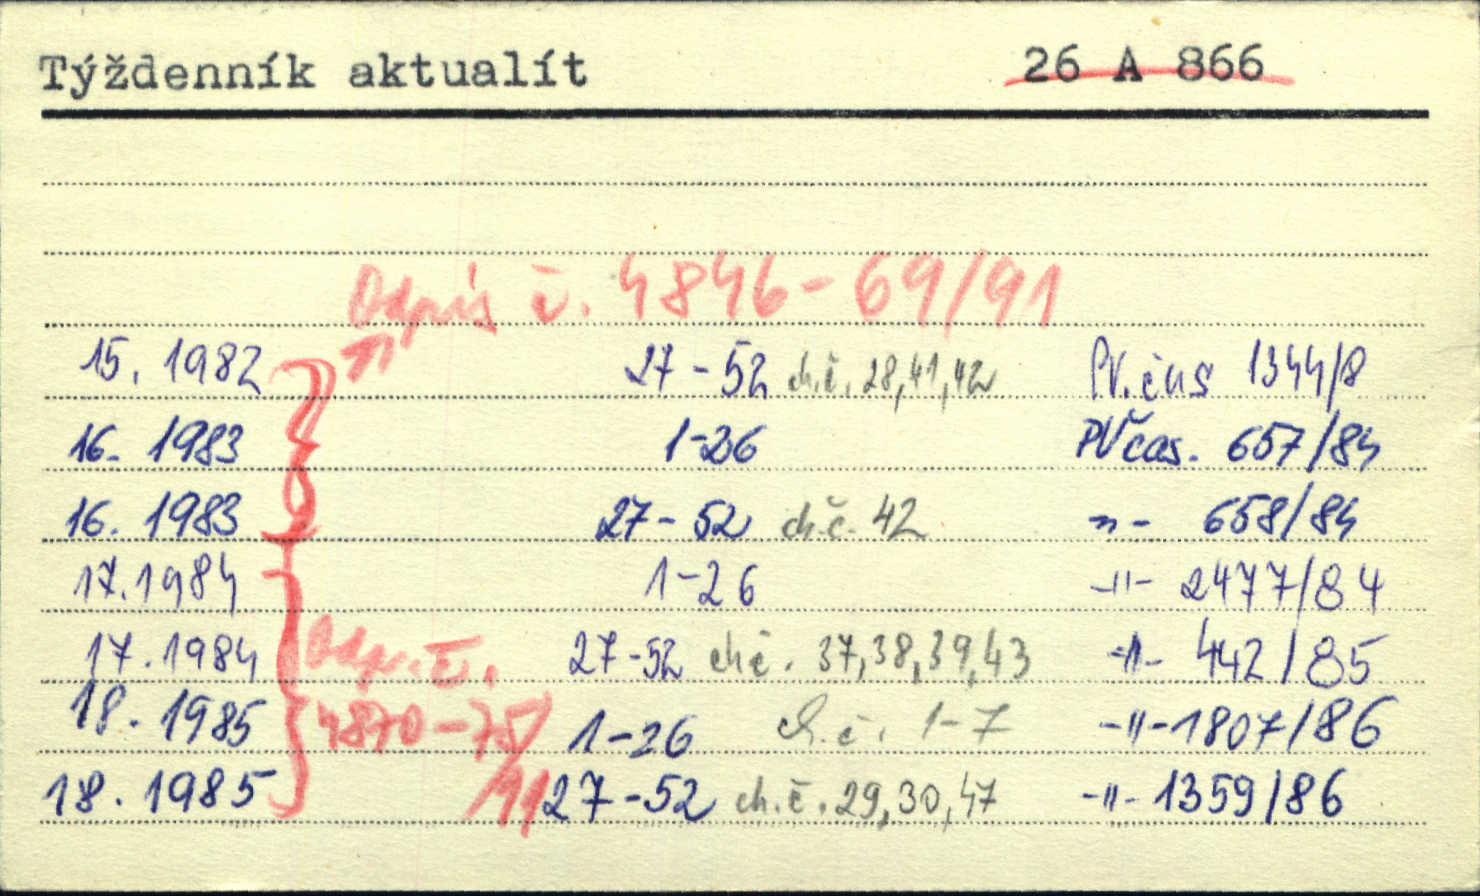 Týždenník aktualít 26 A 866
Odpis č. 4846-69/91
15. 1982 27-52 ch.č. 28,41,42 PV.čas 1344/8
16. 1983 1-26 PVčas. 657/84
16. 1983 27-52 ch.č. 42 -"- 658/84
17. 1984 1-26 -"- 2477/84
17. 1984 27-52 ch č. 37,38,39,43 -"- 442/85
Odp. č.
18. 1985 4870-75/ 1-26 ch.č. 1-7 -"- 1807/86
18. 1985 /91 27-52 ch.č. 29,30,47 -"- 1359/86